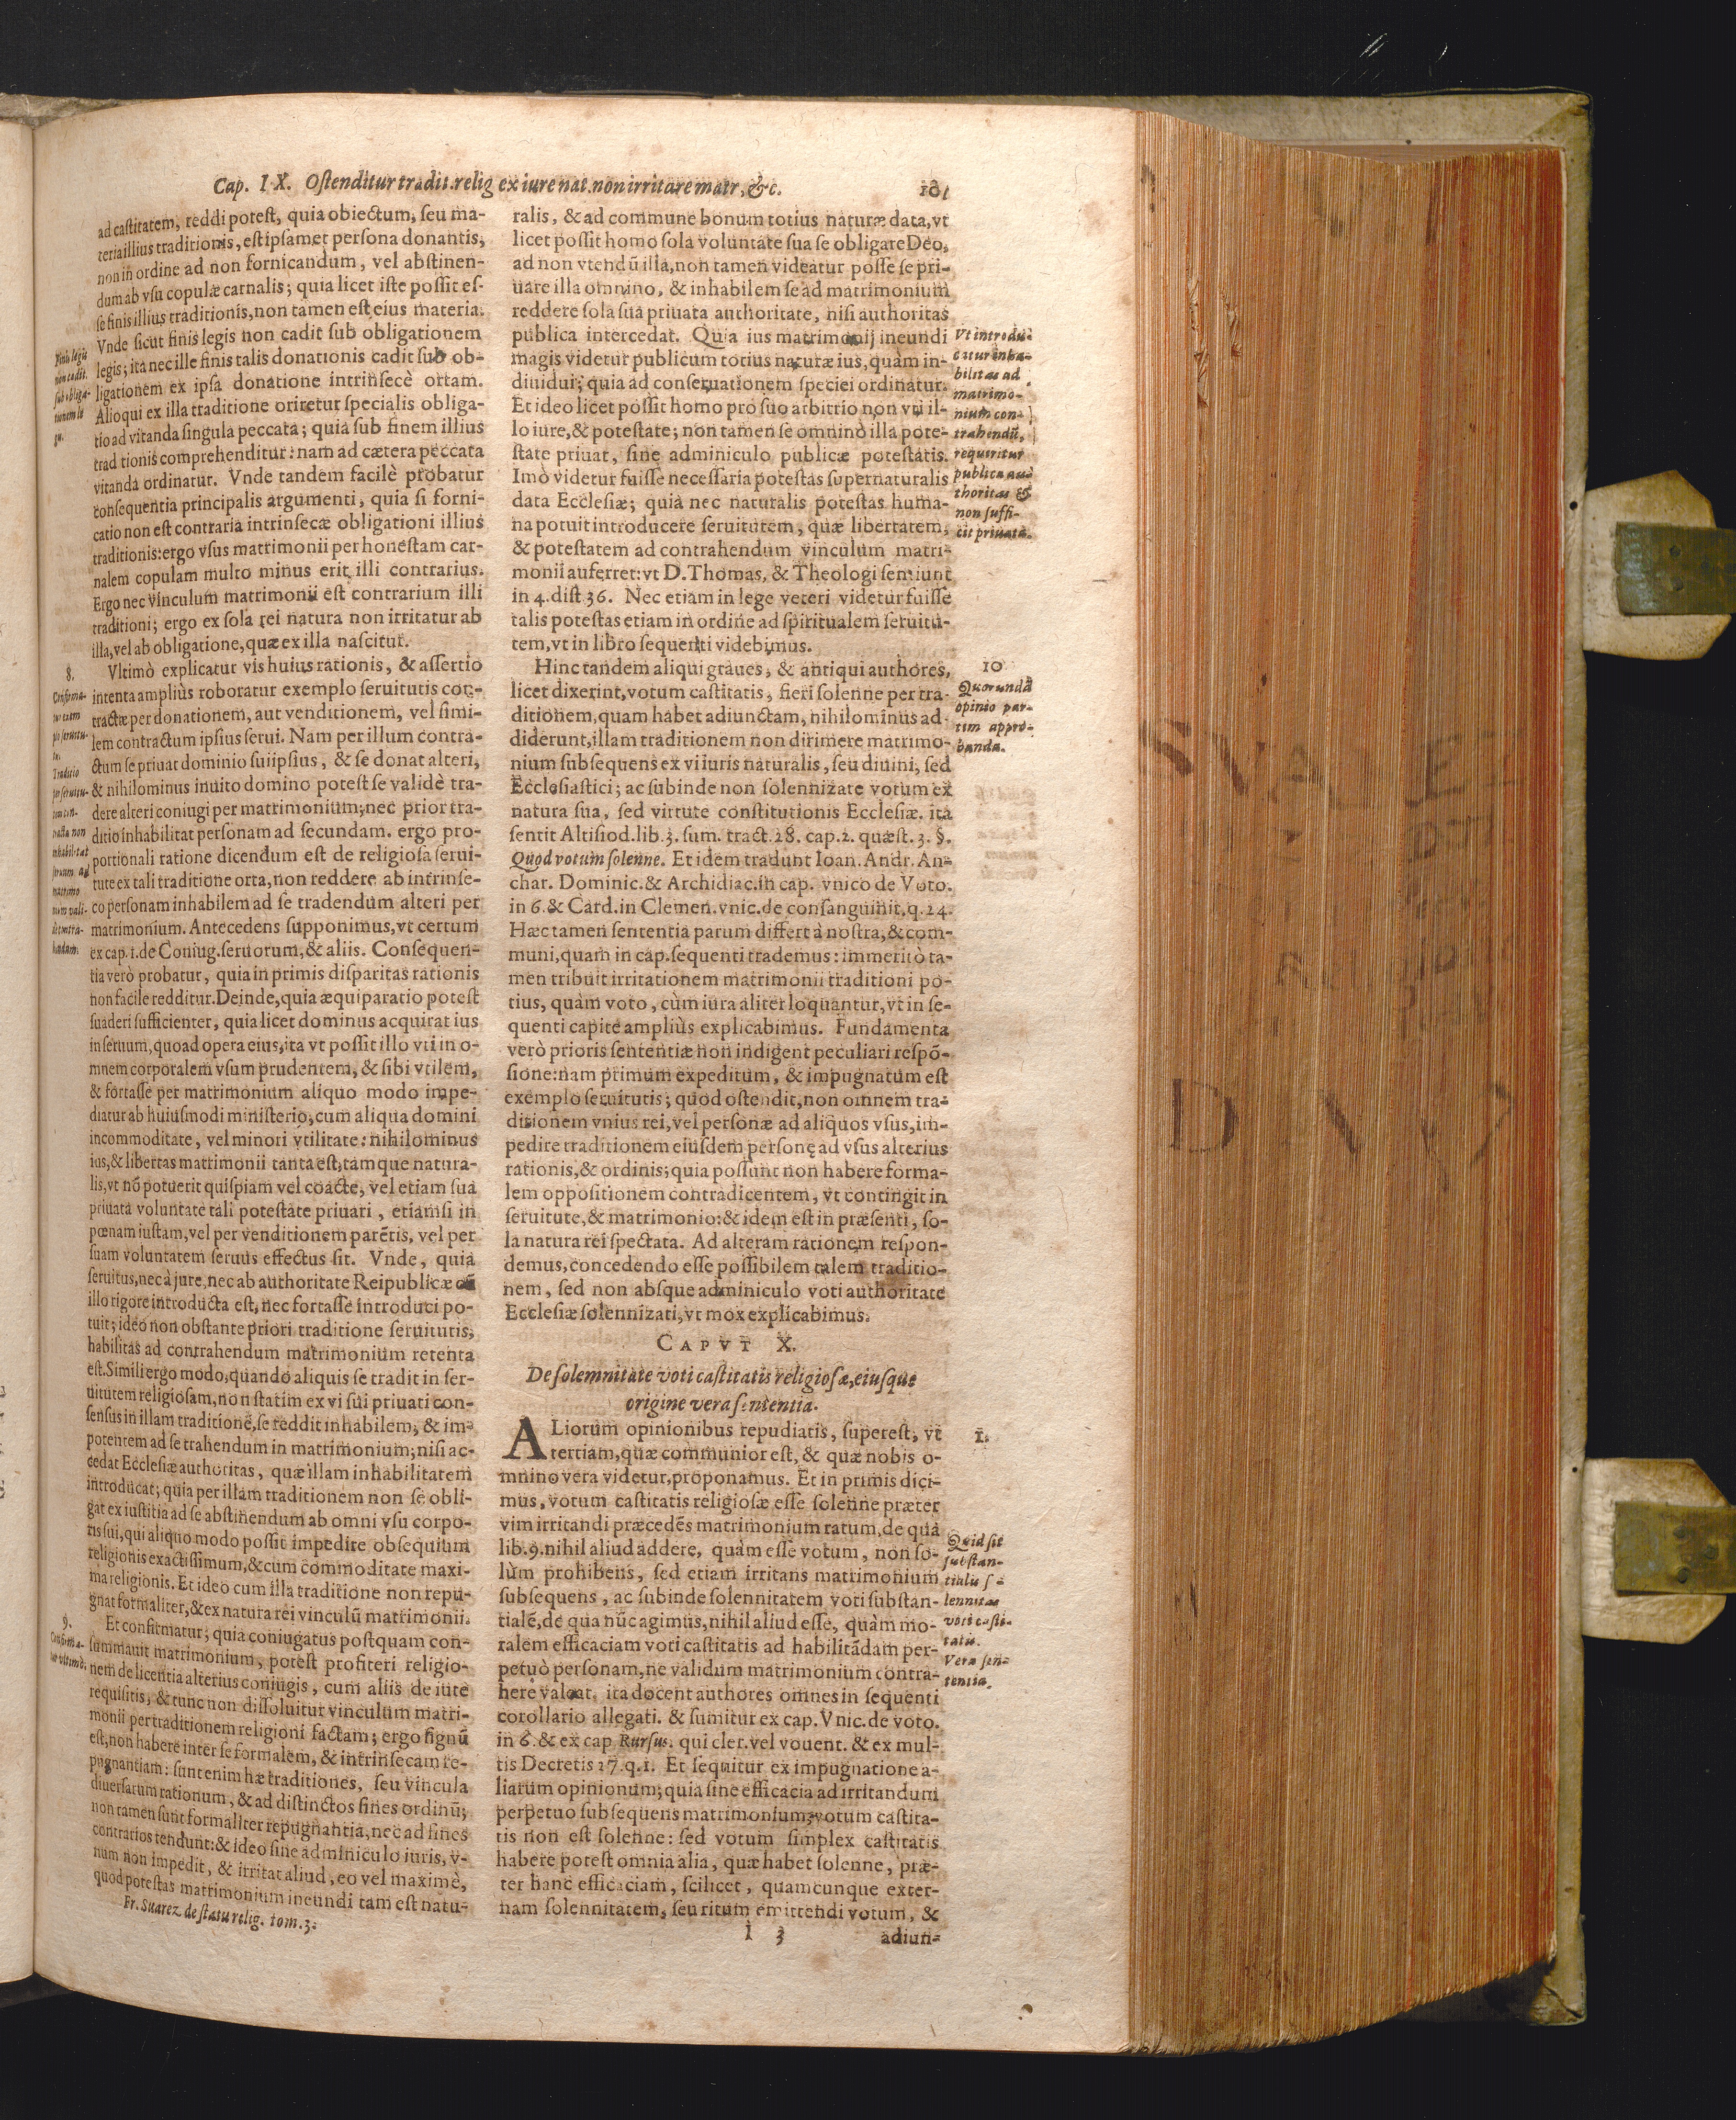 Cap. IX. Ostenditur tradit. relig ex iure nat. non irritare matr, &c. 101
ad castitatem, reddi potest, quia obiectum, seu ma-
teria illius traditionis, est ipsamet persona donantis,
non in ordine ad non fornicandum, vel abstinen-
dum ab vsu copulæ carnalis; quia licet iste possit es-
se finis illius traditionis, non tamen est eius materia.
Vnde sicut finis legis non cadit sub obligationem
legis; ita nec ille finis talis donationis cadit sub ob-
ligationem ex ipsa donatione intrinsecè ortam.
Alioqui ex illa traditione oriretur specialis obliga-
tio ad vitanda singula peccata; quia sub finem illius
trad tionis comprehenditur: nam ad cætera peccata
vitanda ordinatur. Vnde tandem facilè probatur
consequentia principalis argumenti, quia si forni-
catio non est contraria intrinsecæ obligationi illius
traditionis: ergo vsus matrimonii per honestam car-
nalem copulam multo minus erit illi contrarius.
Ergo nec vinculum matrimonii est contrarium illi
traditioni; ergo ex sola rei natura non irritatur ab
illa, vel ab obligatione, quæ ex illa nascitur.
Vltimò explicatur vis huius rationis, & assertio
intenta ampliùs roboratur exemplo seruitutis con-
tractæ per donationem, aut venditionem, vel simi-
lem contractum ipsius serui. Nam per illum contra-
ctum se priuat dominio sui ipsius, & se donat alteri,
& nihilominus inuito domino potest se validè tra-
dere alteri coniugi per matrimonium; nec prior tra-
ditio inhabilitat personam ad secundam. ergo pro-
portionali ratione dicendum est de religiosa serui-
tute ex tali traditione orta, non reddere ab intrinse-
co personam inhabilem ad se tradendum alteri per
matrimonium. Antecedens supponimus, vt certum
ex cap. 1. de Coniug. seruorum, & aliis. Consequen-
tia verò probatur, quia in primis disparitas rationis
non facile redditur. Deinde, quia æquiparatio potest
suaderi sufficienter, quia licet dominus acquirat ius
in seruum, quoad opera eius, ita vt possit illo vti in o-
mnem corporalem vsum prudentem, & sibi vtilem,
& fortasse per matrimonium aliquo modo impe-
diatur ab huiusmodi ministerio, cum aliqua domini
incommoditate, vel minori vtilitate: nihilominus
ius, & libertas matrimonii tanta est, tamque natura-
lis, vt nõ potuerit quispiam vel coacte, vel etiam sua
priuata voluntate tali potestate priuari, etiamsi in
pœnam iustam, vel per venditionem parẽtis, vel per
suam voluntatem seruus effectus sit. Vnde, quia
seruitus, nec à jure, nec ab authoritate Reipublicæ cũ
illo rigore introducta est, nec fortasse introduci po-
tuit; ideo non obstante priori traditione seruitutis,
habilitas ad contrahendum matrimonium retenta
est. Simili ergo modo, quando aliquis se tradit in ser-
uitutem religiosam, non statim ex vi sui priuati con-
sensus in illam traditionẽ, se reddit inhabilem, & im-
potentem ad se trahendum in matrimonium; nisi ac-
cedat Ecclesiæ authoritas, quæ illam inhabilitatem
introducat; quia per illam traditionem non se obli-
gat ex iustitia ad se abstinendum ab omni vsu corpo-
ris sui, qui aliquo modo possit impedire obsequium
religionis exactissimum, & cum commoditate maxi-
ma religionis. Et ideo cum illa traditione non repu-
gnat formaliter, & ex natura rei vinculũ matrimonii.
Et confirmatur; quia coniugatus postquam con-
summauit matrimonium, potest profiteri religio-
nem de licentia alterius coniugis, cum aliis de iure
requisitis, & tunc non dissoluitur vinculum matri-
monii per traditionem religioni factam; ergo signũ
est, non habere inter se formalem, & intrinsecam re-
pugnantiam: sunt enim hæ traditiones, seu vincula
diuersarum rationum, & ad distinctos fines ordinũ;
non tamen sunt formaliter repugnantia, nec ad fines
contrarios tendunt: & ideo sine adminiculo iuris, v-
num non impedit, & irritat aliud, eo vel maximè,
quod potestas matrimonium ineundi tam est natu-
Fr. Suarez de statu relig. tom. 3.
Finis legis
non cadit
sub obliga-
tionem le
gis.
8.
Confirma-
tur exem
plo seruitu-
tis.
Traditio
per seruitu-
tem con-
tracta non
inhabilitat
seruum ad
matrimo
nium vali-
de contra-
hendum.
9.
Confirma-
tur vltimò.
ralis, & ad commune bonum totius naturæ data, vt
licet possit homo sola voluntate sua se obligare Deo,
ad non vtendũ illa, non tamen videatur posse se pri-
uare illa omnino, & inhabilem se ad matrimonium
reddere sola sua priuata authoritate, nisi authoritas
publica intercedat. Quia ius matrimonij ineundi
magis videtur publicum totius naturæ ius, quàm in-
diuidui; quia ad conseruationem speciei ordinatur.
Et ideo licet possit homo pro suo arbitrio non vti il-
lo iure, & potestate; non tamen se omninò illa pote-
state priuat, sine adminiculo publicæ potestatis.
Imò videtur fuisse necessaria potestas supernaturalis
data Ecclesiæ; quia nec naturalis potestas huma-
na potuit introducere seruitutem, quæ libertatem,
& potestatem ad contrahendum vinculum matri-
monii auferret: vt D. Thomas, & Theologi sentiunt
in 4. dist 36. Nec etiam in lege veteri videtur fuisse
talis potestas etiam in ordine ad spiritualem seruitu-
tem, vt in libro sequenti videbimus.
Hinc tandem aliqui graues, & antiqui authores,
licet dixerint, votum castitatis, fieri solenne per tra-
ditionem, quam habet adiunctam, nihilominus ad-
diderunt, illam traditionem non dirimere matrimo-
nium subsequens ex vi iuris naturalis, seu diuini, sed
Ecclesiastici; ac subinde non solennizate votum ex
natura sua, sed virtute constitutionis Ecclesiæ. ita
sentit Altisiod. lib. 3. sum. tract. 28. cap. 2. quæst. 3. §.
Quod votum solenne. Et idem tradunt Ioan. Andr. An-
char. Dominic. & Archidiac. in cap. vnico de Voto.
in 6. & Card. in Clemen. vnic. de consanguinit. q. 24.
Hæc tamen sententia parum differt à nostra, & com-
muni, quam in cap. sequenti trademus: immeritò ta-
men tribuit irritationem matrimonii traditioni po-
tius, quàm voto, cùm iura aliter loquantur, vt in se-
quenti capite ampliùs explicabimus. Fundamenta
verò prioris sententiæ non indigent peculiari respõ-
sione: nam primum expeditum, & impugnatum est
exemplo seruitutis; quod ostendit, non omnem tra-
ditionem vnius rei, vel personæ ad aliquos vsus, im-
pedire traditionem eiusdem personę ad vsus alterius
rationis, & ordinis; quia possunt non habere forma-
lem oppositionem contradicentem, vt contingit in
seruitute, & matrimonio: & idem est in præsenti, so-
la natura rei spectata. Ad alteram rationem respon-
demus, concedendo esse possibilem talem traditio-
nem, sed non absque adminiculo voti authoritate
Ecclesiæ solennizati, vt mox explicabimus.
CAPVT X.
De solemnitate voti castitatis religiosæ, eiusque
origine vera sententia.
ALiorum opinionibus repudiatis, superest, vt
tertiam, quæ communior est, & quæ nobis o-
mnino vera videtur, proponamus. Et in primis dici-
mus, votum castitatis religiosæ esse solenne præter
vim irritandi præcedẽs matrimonium ratum, de qua
lib. 9. nihil aliud addere, quàm esse votum, non so-
lùm prohibens, sed etiam irritans matrimonium
subsequens, ac subinde solennitatem voti substan-
tialẽ, de qua nũc agimus, nihil aliud esse, quàm mo-
ralem efficaciam voti castitatis ad habilitãdam per-
petuò personam, ne validum matrimonium contra-
here valeat. ita docent authores omnes in sequenti
corollario allegati. & sumitur ex cap. Vnic. de voto.
in 6. & ex cap Rursus. qui cler. vel vouent. & ex mul-
tis Decretis 27. q. 1. Et sequitur ex impugnatione a-
liarum opinionum; quia sine efficacia ad irritandum
perpetuo subsequens matrimonium, votum castita-
tis non est solenne: sed votum simplex castitatis
habere potest omnia alia, quæ habet solenne, præ-
ter hanc efficaciam, scilicet, quamcunque exter-
nam solennitatem, seu ritum emittendi votum, &
I 3 adiun-
Vt introdu-
catur inha-
bilitas ad
matrimo-
nium con-
trahendũ,
requiritur
publica au-
thoritas &
non suffi-
cit priuata.
10
Quorundã
opinio par-
tim appro-
banda.
1.
Quid sit
substan-
tialis s -
lennitas
voti casti-
tatis.
Vera sen-
tentia.